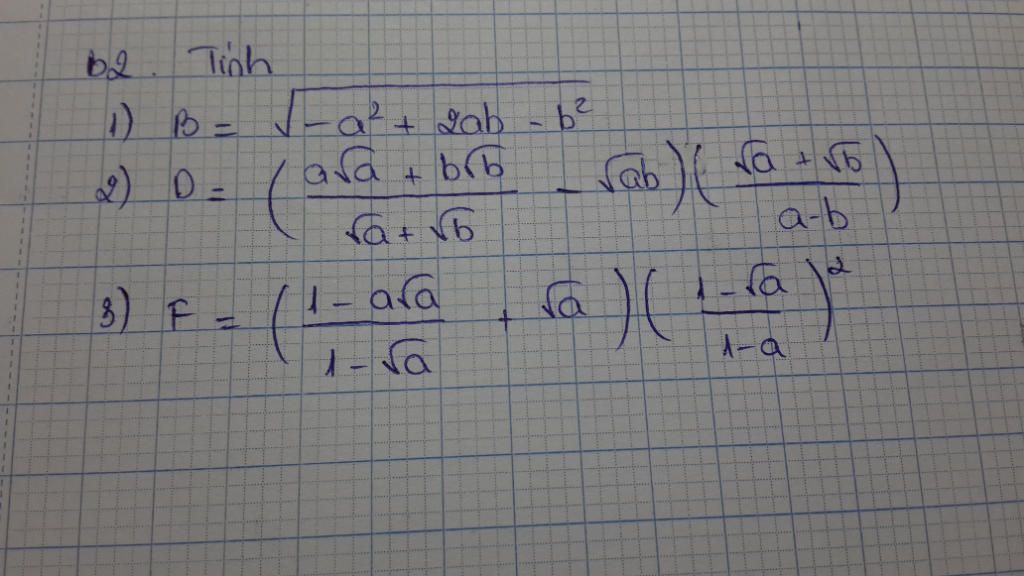 b2. Tính
1) B = √(-a² + 2ab - b²)
2) D = ((a√a + b√b)/(√a + √b) - √ab)((√a + √b)/(a-b))
3) F = ((1 - a√a)/(1 - √a) + √a)((1 - √a)/(1-a))²